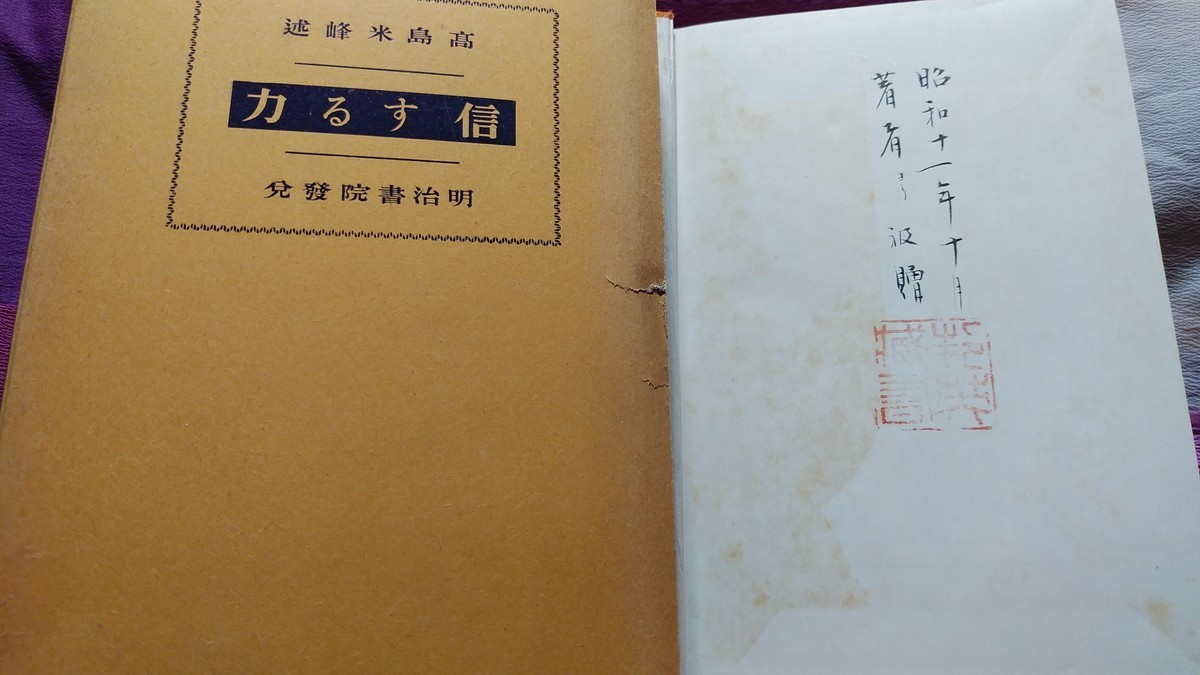 髙島米峰述
信する力
明治書院發兌
昭和十一年十月
著者 被贈
藏書